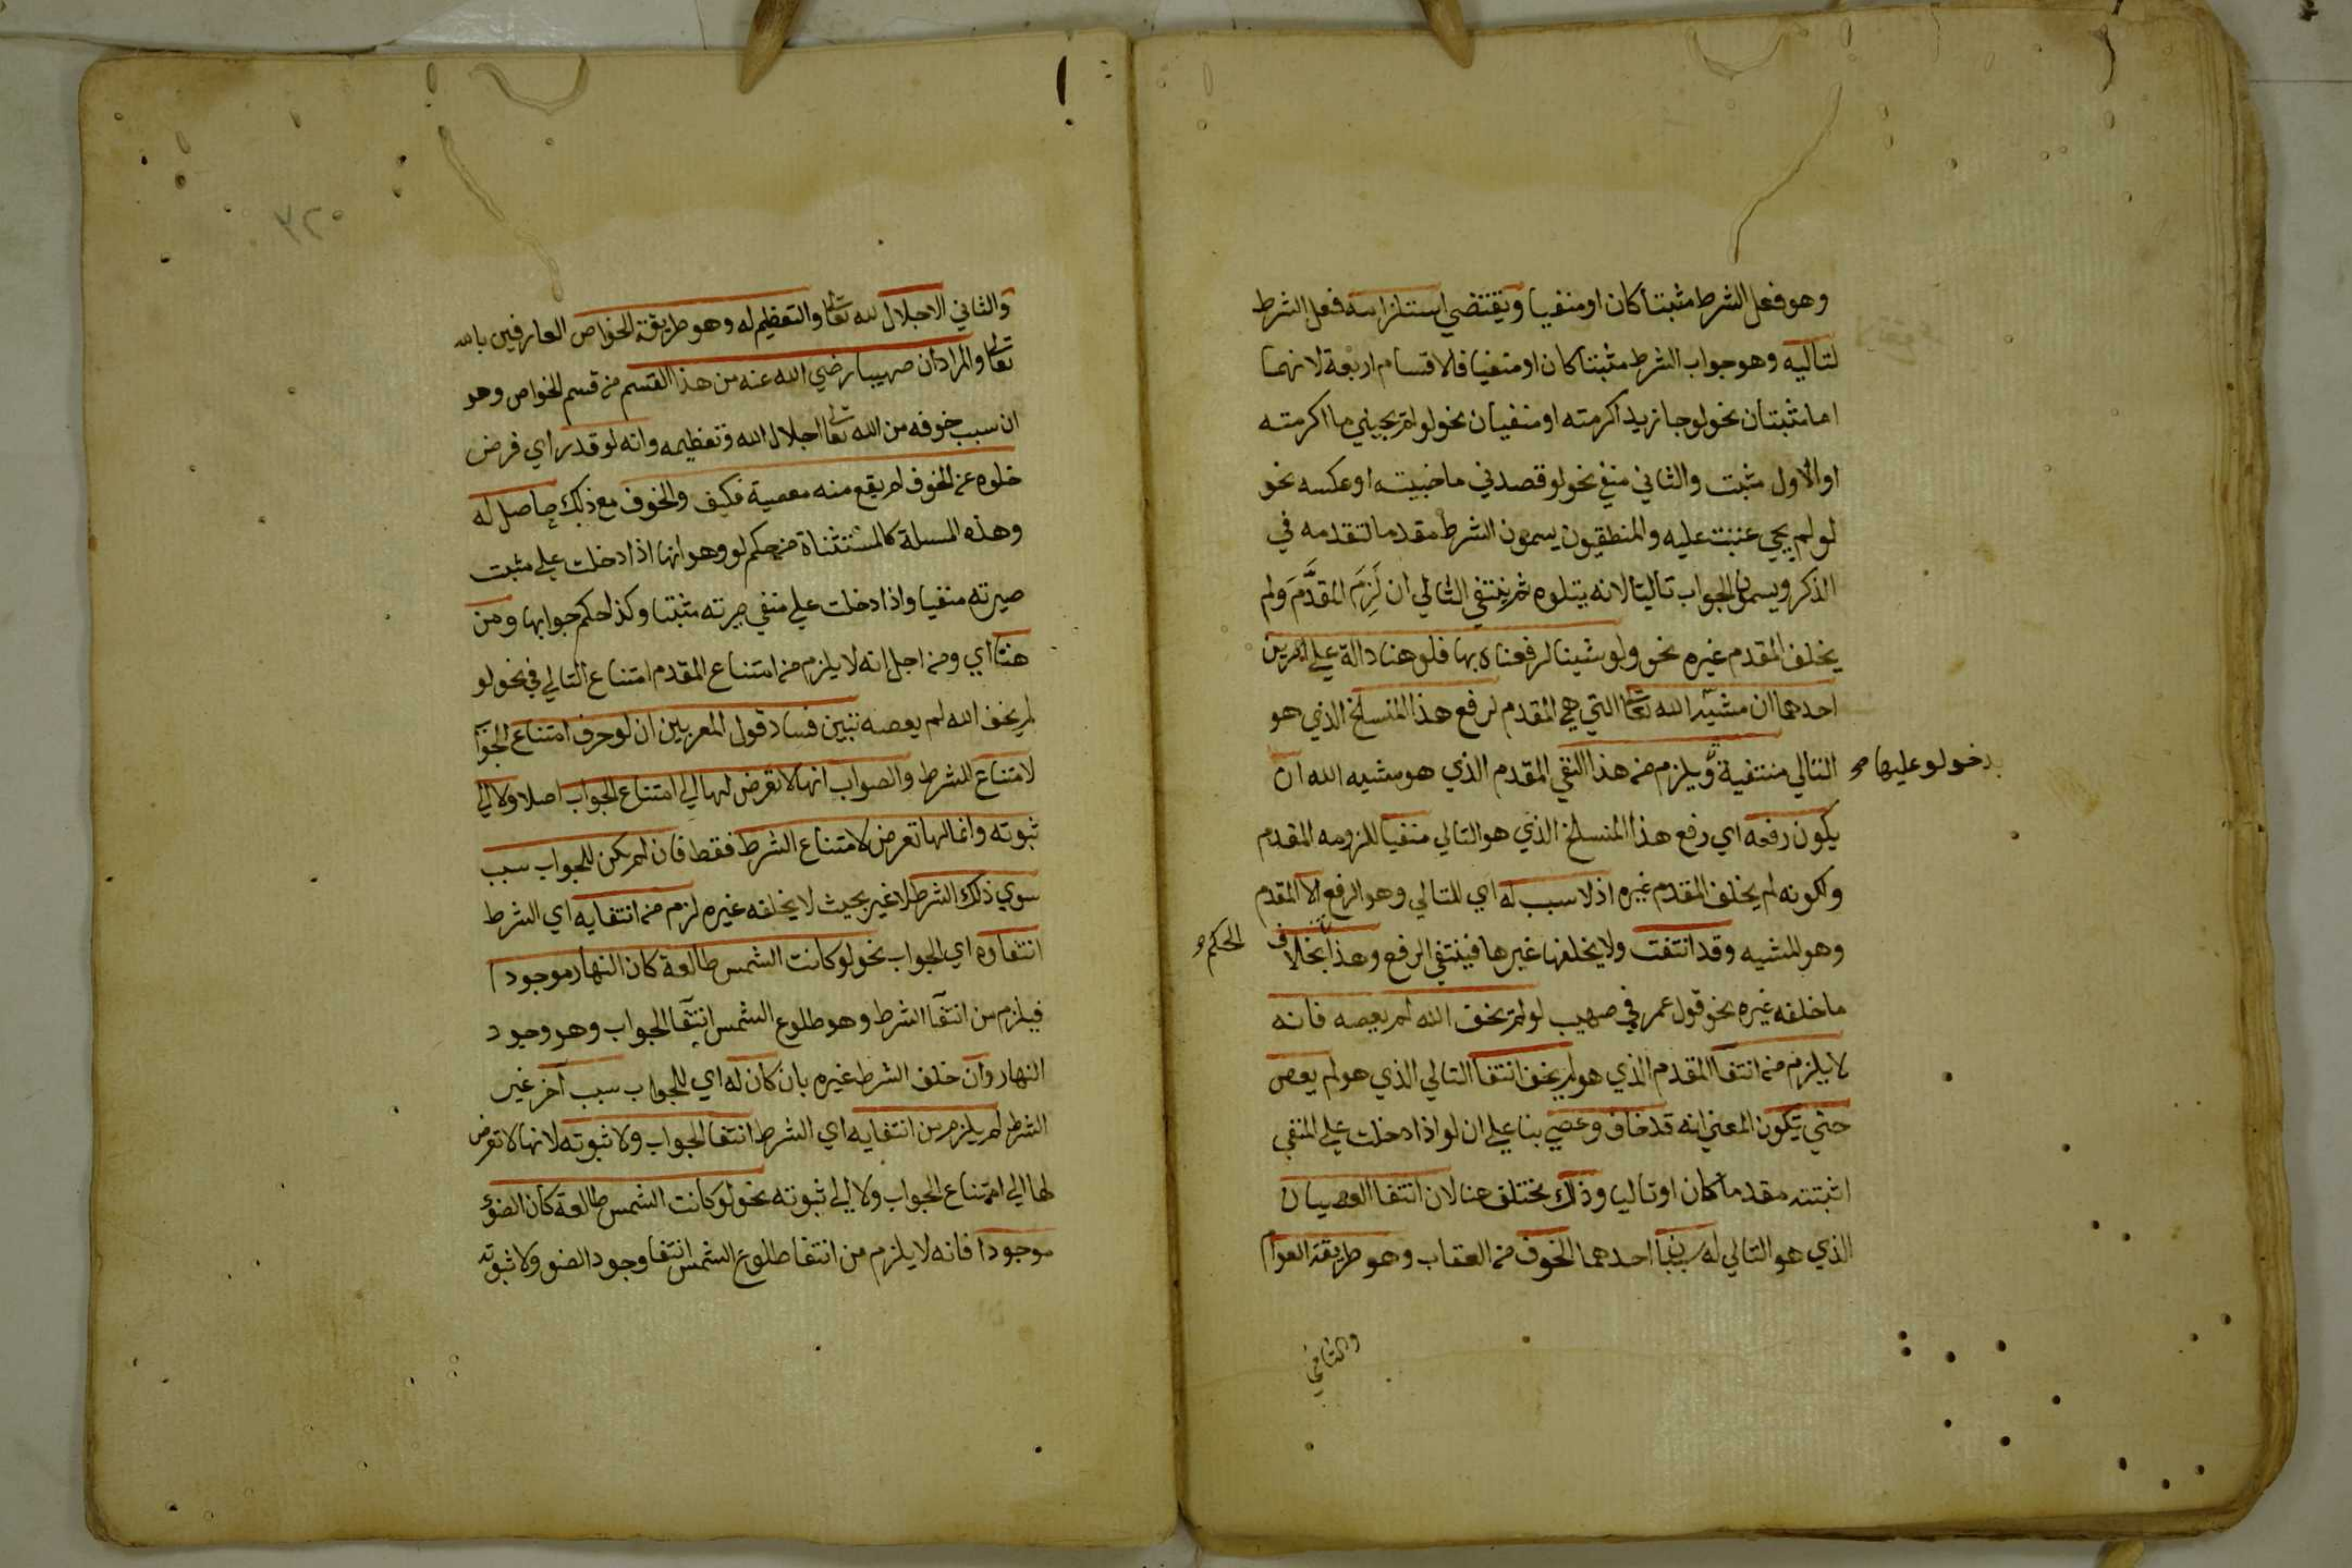 وهو فعل الشرط مثبتا كان او منفيا ويقتضي استلزامه فعل الشرط
لتاليه وهو جواب الشرط مثبتا كان او منفيا فالاقسام اربعة لانهما
اما مثبتان نحو لو جا زيد اكرمته او منفيان نحو لو لم يجيني ما اكرمته
او الاول مثبت والثاني منفي نحو لو قصدني ما خيبته او عكسه نحو
لو لم يجي عتبت عليه والمنطقيون يسمون الشرط مقدما لتقدمه في
الذكر ويسمون الجواب تاليا لانه يتلوه ثم ينتفي التالي ان لَزِمَ المقدَّمَ ولم
يخلف المقدم غيره نحو ولو شينا لرفعناه بها فلو هنا دالة علي امرين
احدهما ان مشية الله تعالى التي هي المقدم لرفع هذا المنسلخ الذي هو
التالي منتفية ويلزم من هذا النفي المقدم الذي هو مشيه الله ان
بدخول لو عليها صح
يكون رفعه اي رفع هذا المنسلخ الذي هو التالي منفيا للزومه المقدم
ولكونه لم يخلف المقدم غيره اذ لا سبب له اي للتالي وهو الرفع الا المقدم
وهو المشيه وقد انتفت ولا يخلفها غيرها فينتفي الرفع وهذا بخلاف
الحكم
ما خلفه غيره نحو قول عمر في صهيب لو لم يخف الله لم يعصه فانه
لا يلزم من انتفا المقدم الذي هو لم يخف انتفا التالي الذي هو لم يعص
حتي يكون المعني انه قد خاف وعصي بنا علي ان لو اذا دخلت علي المنفي
اثبتته مقدما كان او تاليا وذلك يختلف هنا لان انتفا العصيان
الذي هو التالي له سببان احدهما الخوف من العقاب وهو طريقة العوام
والثاني
والثاني الاجلال لله تعالى والتعظيم له وهو طريقة الخواص العارفين بالله
تعالى والمراد ان صهيبا رضي الله عنه من هذا القسم من قسم الخواص وهو
ان سبب خوفه من الله تعالى اجلال الله وتعظيمه وانه لو قدر اي فرض
خلوه عن الخوف لم يقع منه معصية فكيف والخوف مع ذلك حاصل له
وهذه المسلة كالمستثناة من حكم لو وهو انها اذا دخلت علي مثبت
صيرته منفيا واذا دخلت علي منفي صيرته مثبتا وكذا حكم جوابها ومن
هنا اي ومن اجل انه لا يلزم من امتناع المقدم امتناع التالي في نحو لو
لم يخف الله لم يعصه تبين فساد قول المعربين ان لو حرف امتناع الجواب
لامتناع الشرط والصواب انها لا تعرض لها الي امتناع الجواب اصلا ولا الي
ثبوته وانما لها تعرض لامتناع الشرط فقط فان لم يكن للجواب سبب
سوي ذلك الشرط لا غير بحيث لا يخلفه غيره لزم من انتفايه اي الشرط
انتفاوه اي الجواب نحو لو كانت الشمس طالعة كان النهار موجودا
فيلزم من انتفآ الشرط وهو طلوع الشمس انتفآ الجواب وهو وجود
النهار وان خلف الشرط غيره بان كان له اي للجواب سبب آخر غير
الشرط لم يلزم من انتفايه اي الشرط انتفا الجواب ولا ثبوته لانها لا تعرض
لها الي امتناع الجواب ولا الي ثبوته نحو لو كانت الشمس طالعة كان الضوء
موجودا فانه لا يلزم من انتفا طلوع الشمس انتفا وجود الضو ولا ثبوته
٣٢٠